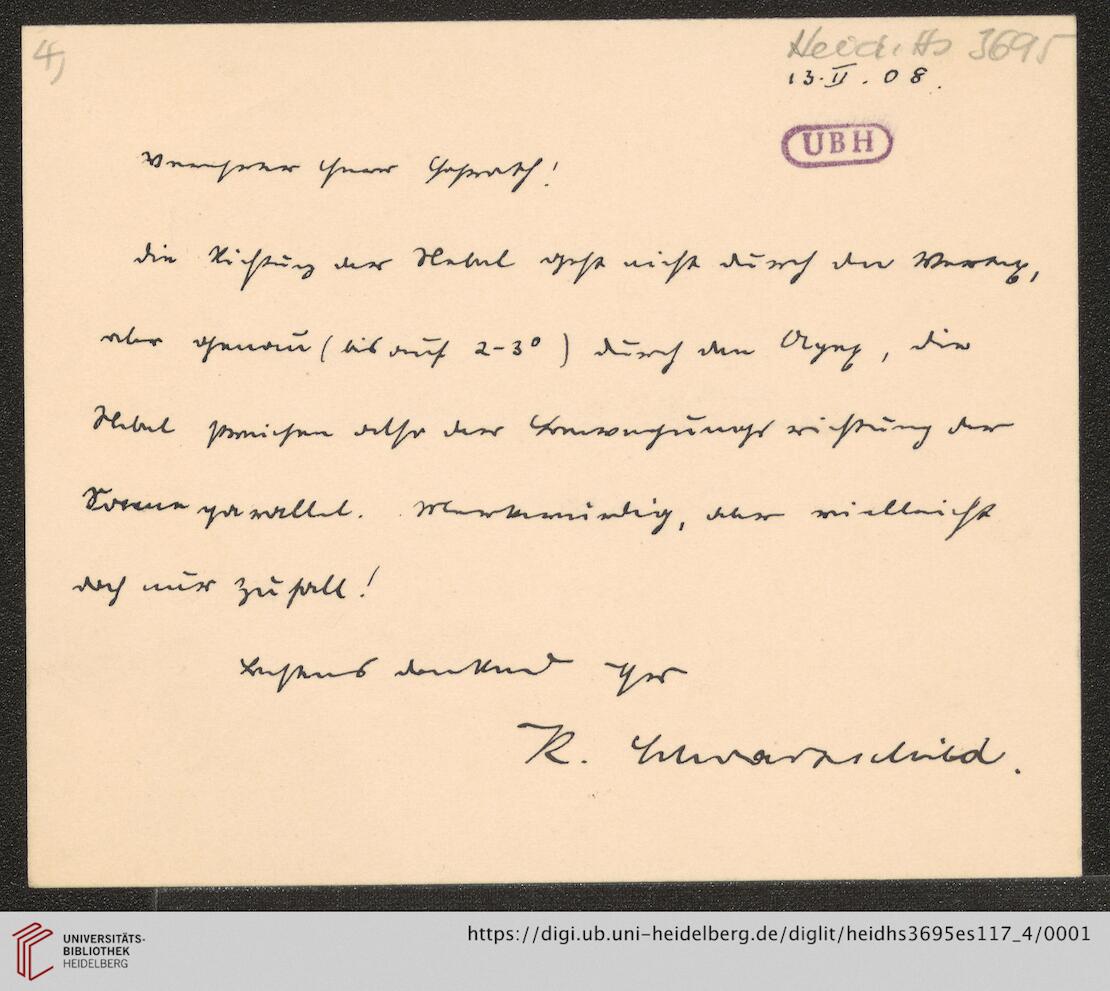 4)
Heid. Hs 3695
13.II.08.
UBH
Verehrter Herr Hofrath!
die Richtung der Nebel geht nicht durch den Vertex,
aber genau (bis auf 2-3°) durch den Apex, die
Nebel streichen also der Bewegungsrichtung der
Sonne parallel. Merkwürdig, aber vielleicht
doch nur Zufall!
Bestens dankend Ihr
K. Schwarzschild.
UNIVERSITÄTS-
BIBLIOTHEK
HEIDELBERG
https://digi.ub.uni-heidelberg.de/diglit/heidhs3695es117_4/0001